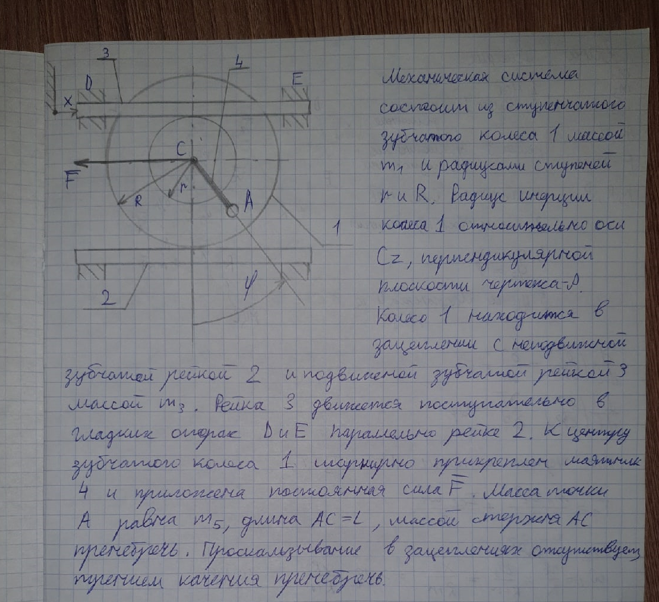 3
4
D
E
X
C
F
R
r
A
1
2
φ
Механическая система
состоит из ступенчатого
зубчатого колеса 1 массой
m₁ и радиусами ступеней
r и R. Радиус инерции
колеса 1 относительно оси
Cz, перпендикулярной
плоскости чертежа-ρ.
Колесо 1 находится в
зацеплении с неподвижной
зубчатой рейкой 2 и подвижной зубчатой рейкой 3
массой m₃. Рейка 3 движется поступательно в
гладких опорах D и E параллельно рейке 2. К центру
зубчатого колеса 1 шарнирно прикреплен маятник
4 и приложена постоянная сила F̅. Масса точки
A равна m₅, длина AC=L, массой стержня AC
пренебречь. Проскальзывание в зацеплениях отсутствует,
трением качения пренебречь.